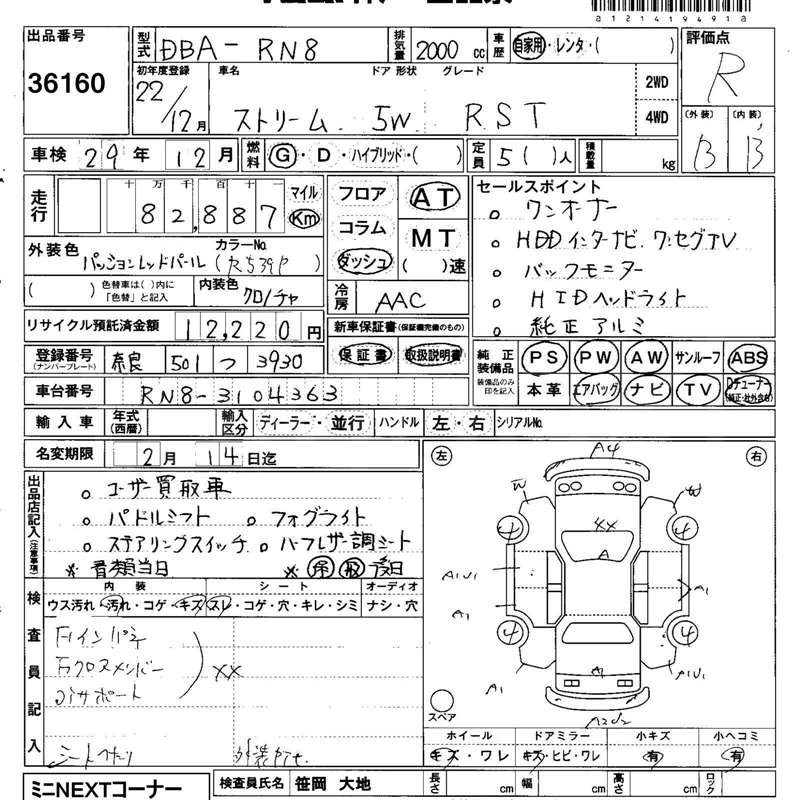 a12141949 1a
出品番号
36160
型式 DBA-RN8
排気量 2000 cc
車歴 自家用・レンタ・( )
評価点
R
初年度登録
22/12月
車名
ストリーム
ドア 形状
5W
グレード
RST
2WD
4WD
(外装) (内装)
B B
車検 29年 12月
燃料 G・D・ハイブリッド・( )
定員 5( )人
積載量 kg
走行
十 万 千 百 十 一
82,887
マイル
Km
フロア
コラム
ダッシュ
AT
MT
( )速
セールスポイント
。ワンオーナー
。HDDインターナビ.ワンセグTV
。バックモニター
。HIDヘッドライト
。純正アルミ
外装色
パッションレッドパール
カラーNo.
(R539P )
( ) 色替車は( )内に「色替」と記入
内装色
クロ/チャ
冷房 AAC
リサイクル預託済金額 12,220円
新車保証書(保証継続完備のもの)
保証書 取扱説明書
登録番号
(ナンバープレート)
奈良 501 つ 3930
純正装備品
装備品のみ印を記入
PS PW AW サンルーフ ABS
本革 エアバッグ ナビ TV
車台番号 RN8-3104363
輸入車
年式(西暦)
輸入区分 ディーラー・並行
ハンドル 左・右
シリアルNo.
名変期限 2月 14日迄
出品店記入(注意事項)
。ユーザー買取車
。パドルシフト 。フォグライト
。ステアリングスイッチ 。ハーフレザー調シート
※ 書類当日 ※ 保 取 後日
検査員記入
内装 シート オーディオ
ウス汚れ・汚れ・コゲ・キズ スレ・コゲ・穴・キレ・シミ ナシ・穴
Fインパネ
Fクロスメンバー
コアサポート
XX
左 右
A4
W W
4 4
XX
A
A1U1
A1
A1
4 4
A
A1 A1U1
A2U2
スペア
ホイール ドアミラー 小キズ 小ヘコミ
キズ・ワレ キズ・ヒビ・ワレ 有 有
ミニNEXTコーナー
検査員氏名 笹岡 大地
長さ cm 幅 cm 高さ cm ロック